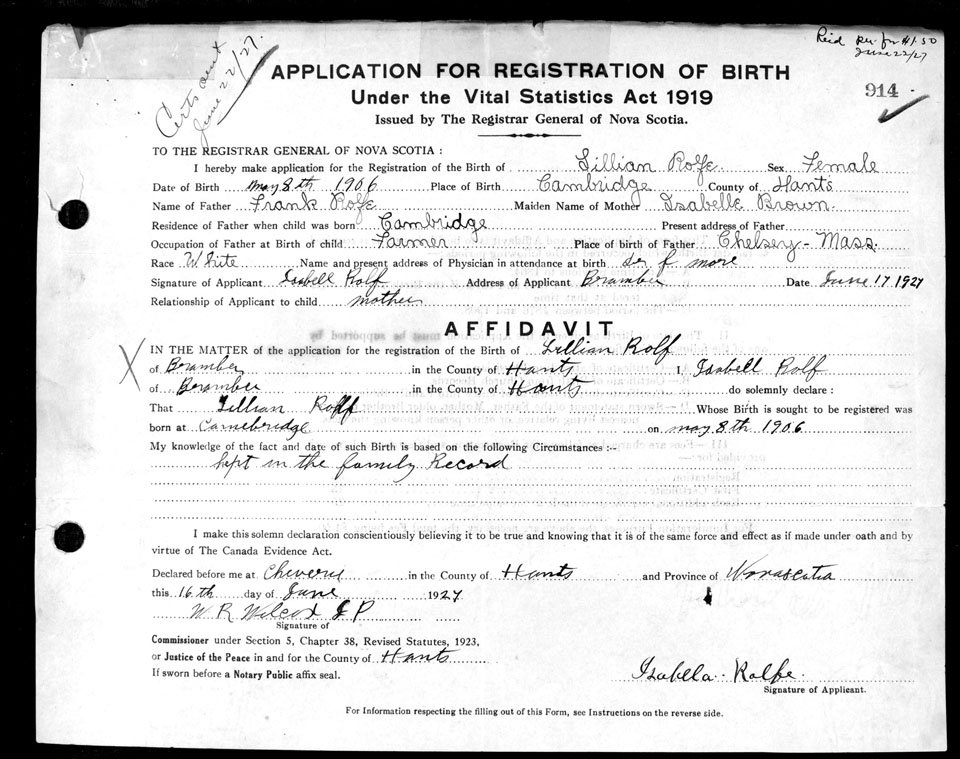 Certs sent
June 22/27.
Reid Rec. for $1.50
June 22/27
914
APPLICATION FOR REGISTRATION OF BIRTH
Under the Vital Statistics Act 1919
Issued by The Registrar General of Nova Scotia.
TO THE REGISTRAR GENERAL OF NOVA SCOTIA :
I hereby make application for the Registration of the Birth of Lillian Rolfe Sex Female
Date of Birth May 8th 1906 Place of Birth Cambridge County of Hants
Name of Father Frank Rolfe Maiden Name of Mother Isabelle Brown.
Residence of Father when child was born Cambridge Present address of Father
Occupation of Father at Birth of child Farmer Place of birth of Father Chelsey - Mass.
Race White Name and present address of Physician in attendance at birth more
Signature of Applicant Isabell Rolf Address of Applicant Bramber Date June 17 1927
Relationship of Applicant to child mother
AFFIDAVIT
X
IN THE MATTER of the application for the registration of the Birth of Lillian Rolf
of Bramber in the County of Hants I, Isabell Rolf
of Bramber in the County of Hants do solemnly declare :
That Lillian Rolf Whose Birth is sought to be registered was
born at Camebridge on may 8th 1906
My knowledge of the fact and date of such Birth is based on the following Circumstances :--
kept in the family Record
I make this solemn declaration conscientiously believing it to be true and knowing that it is of the same force and effect as if made under oath and by
virtue of The Canada Evidence Act.
Declared before me at Cheverie in the County of Hants and Province of Novascotia
this 16th day of June 1927
W R Wilcox J P
Signature of
Commissioner under Section 5, Chapter 38, Revised Statutes, 1923,
or Justice of the Peace in and for the County of Hants
If sworn before a Notary Public affix seal.
Isabella Rolfe.
Signature of Applicant.
For Information respecting the filling out of this Form, see Instructions on the reverse side.